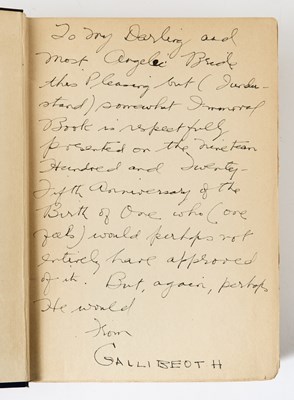 To My Darling and
Most Angelic Bride
this Pleasing but (I under-
stand) somewhat Immoral
Book is respectfully
presented on the Nineteen
Hundred and Twenty-
Fifth Anniversary of the
Birth of One who (one
feels) would perhaps not
entirely have approved
of it. But, again, perhaps
He would
From
GALLIBEOTH